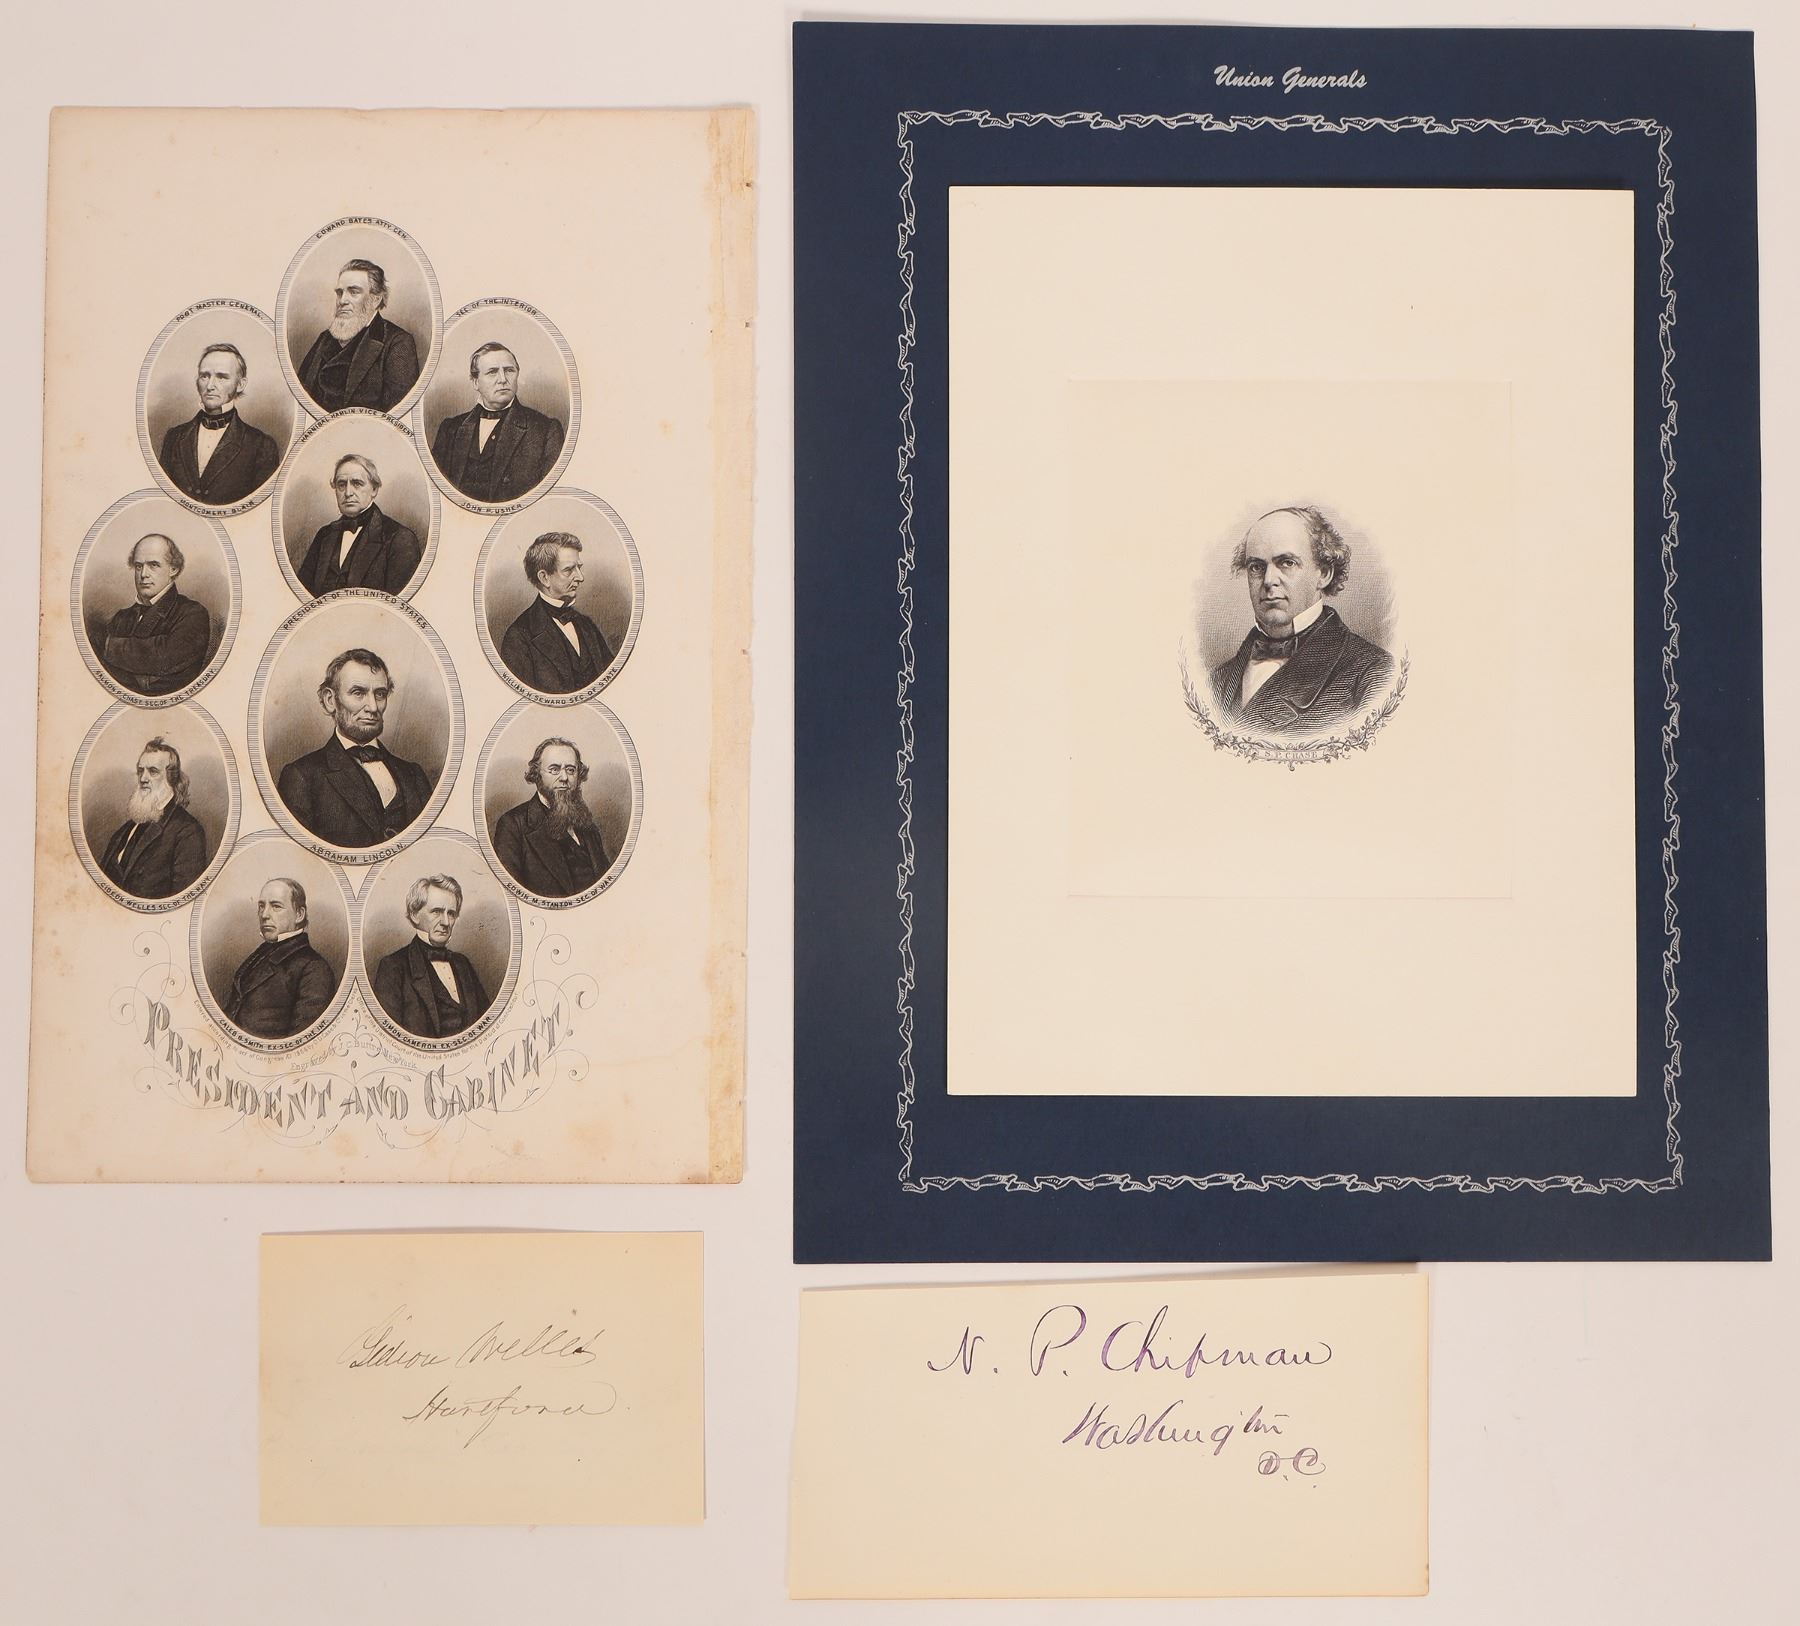 EDWARD BATES ATTY. GEN.
POST MASTER GENERAL.
MONTGOMERY BLAIR
SEC OF THE INTERIOR
JOHN P. USHER
HANNIBAL HAMLIN VICE PRESIDENT
SALMON P. CHASE SEC. OF THE TREASURY.
WILLIAM H. SEWARD SEC. OF STATE.
PRESIDENT OF THE UNITED STATES
ABRAHAM LINCOLN.
GIDEON WELLES SEC. OF THE NAVY.
EDWIN M. STANTON SEC. OF WAR.
CALEB B. SMITH EX-SEC. OF THE INT.
SIMON CAMERON EX-SEC. OF WAR.
Entered according to act of Congress AD
Court of the United States for the District of
Engraved by J.C. Buttre New York.
PRESIDENT AND CABINET.
Union Generals
S. P. CHASE
Gideon Welles
Hartford.
N. P. Chipman
Washington
D.C.